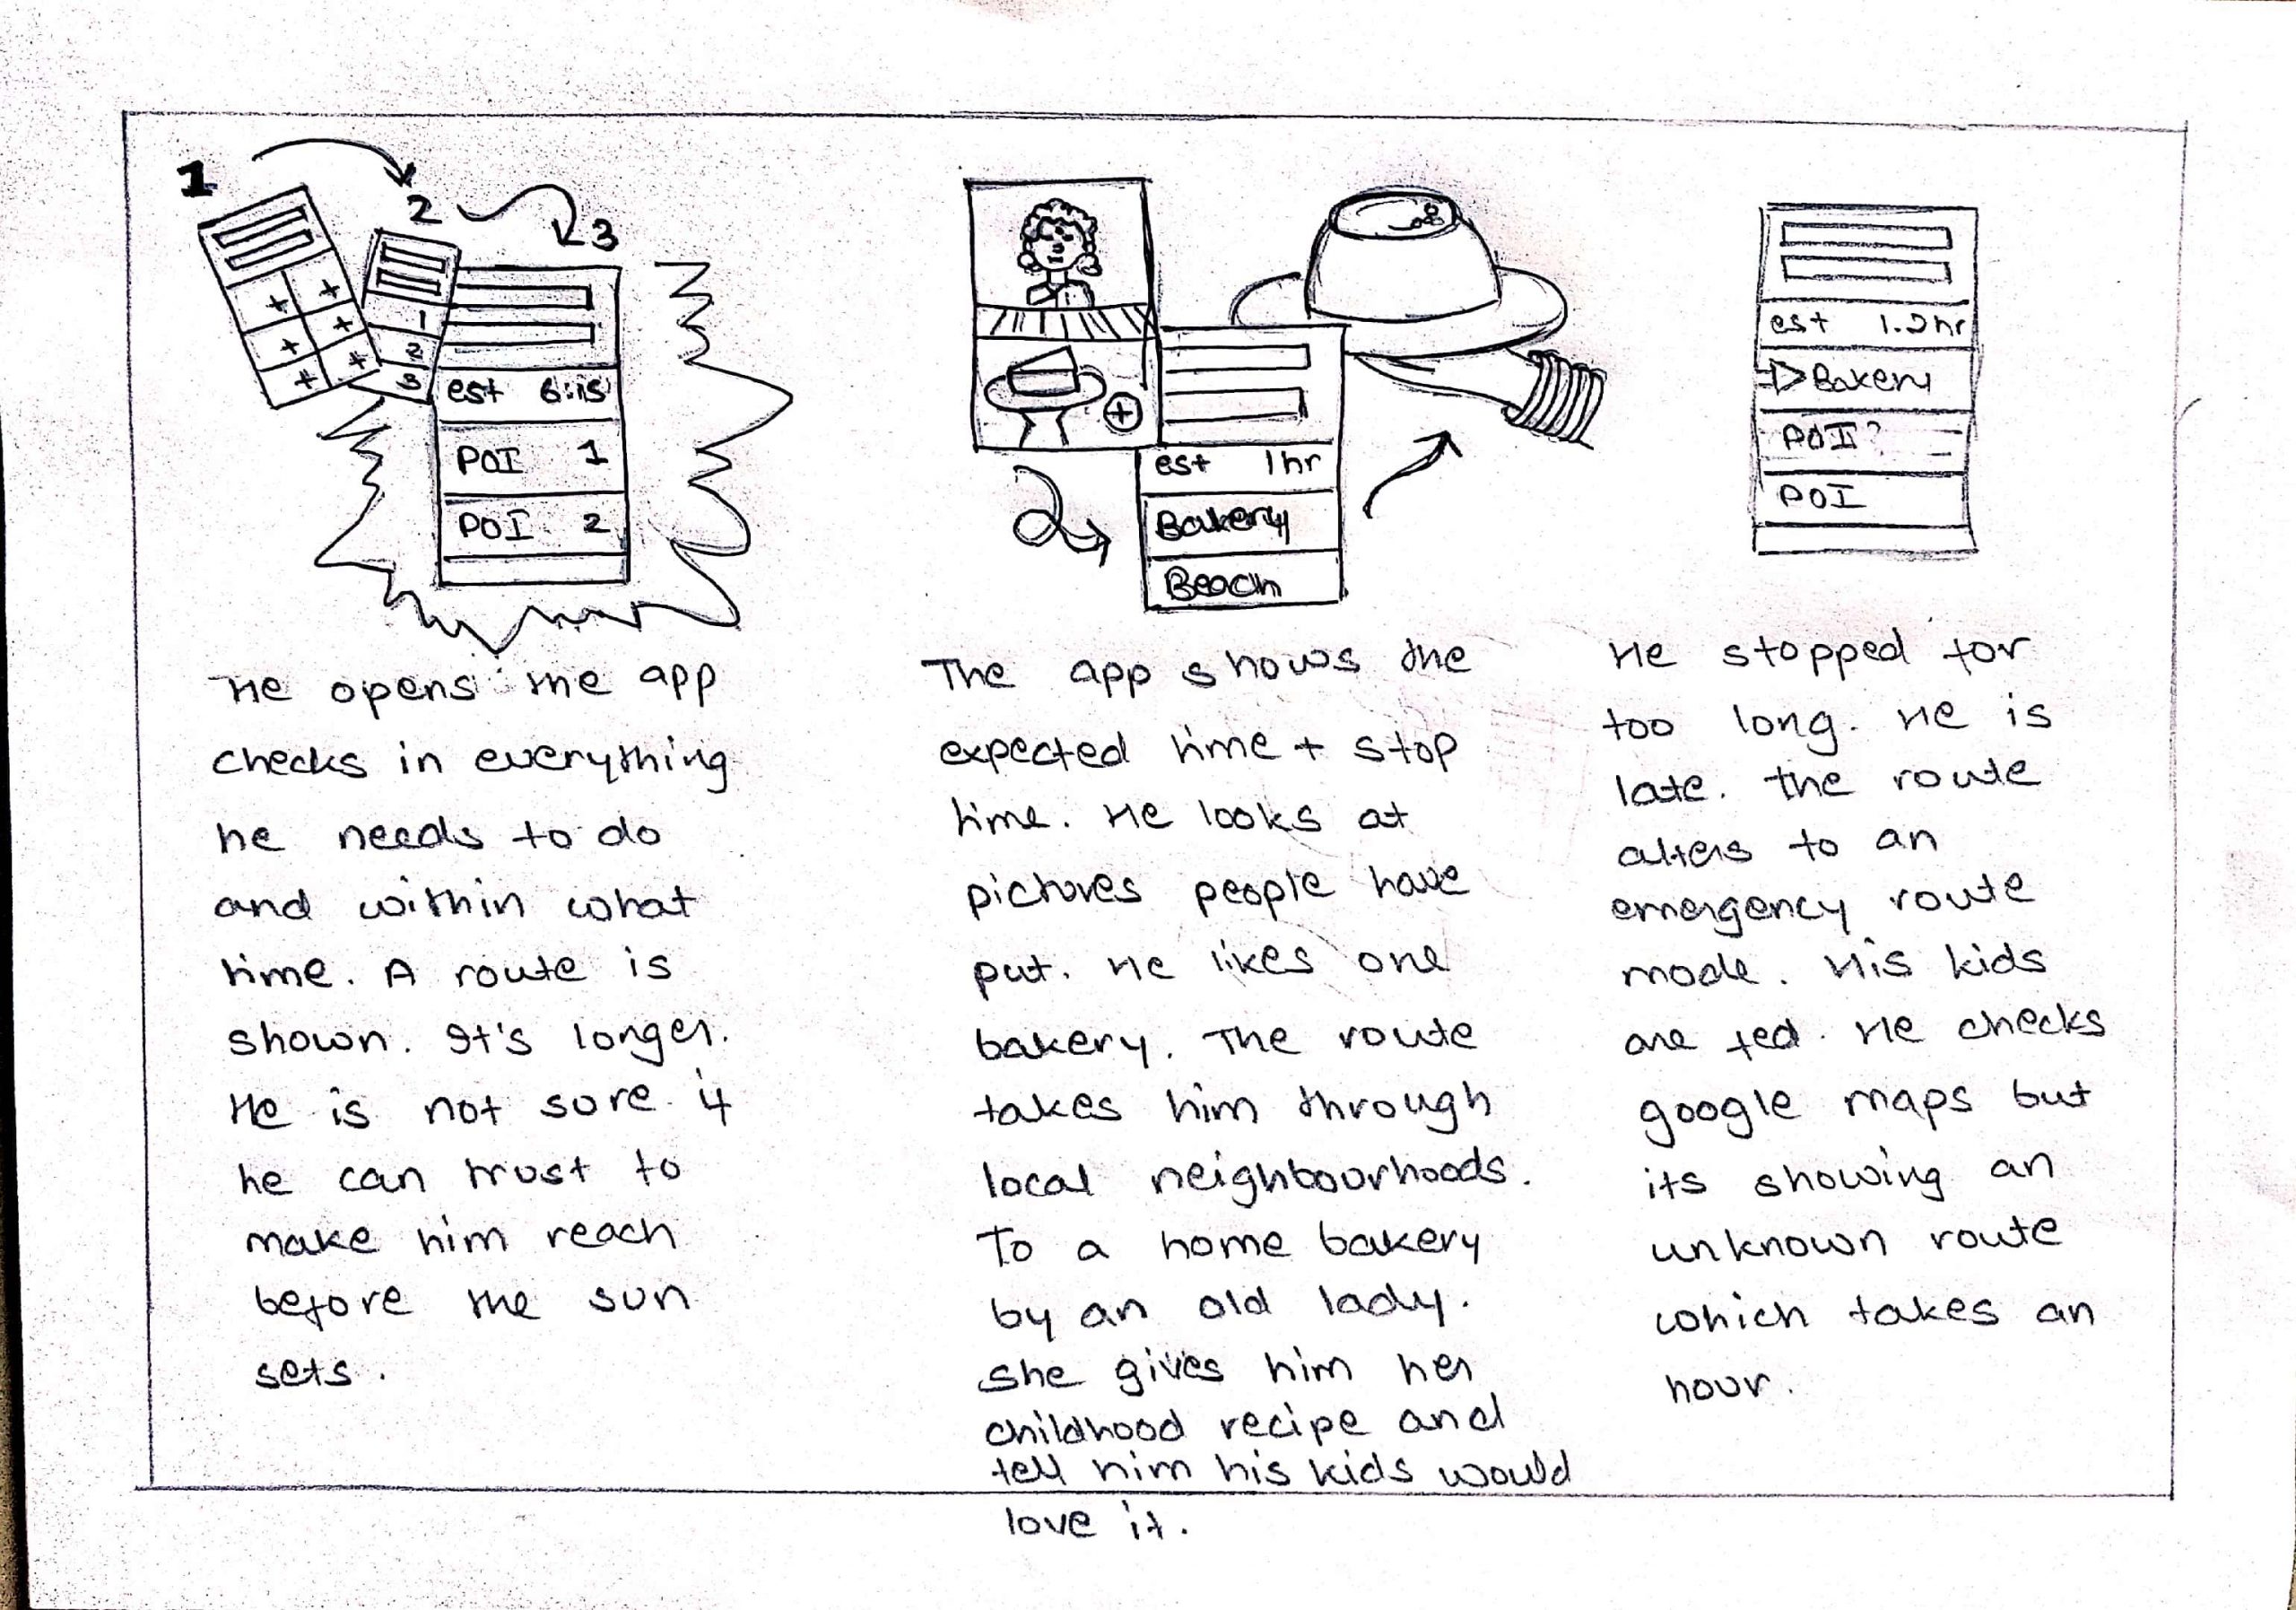 1
2
3
1
2
3
est 6:15
POI 1
POI 2
He opens the app
checks in everything
he needs to do
and within what
time. A route is
shown. It's longer.
He is not sure if
he can trust to
make him reach
before the sun
sets.
est 1hr
Bakery
Beach
The app shows the
expected time + stop
time. He looks at
pictures people have
put. He likes one
bakery. The route
takes him through
local neighbourhoods.
To a home bakery
by an old lady.
She gives him her
childhood recipe and
tell him his kids would
love it.
est 1.2hr
Bakery
POI?
POI
He stopped for
too long. He is
late. The route
alters to an
emergency route
mode. His kids
are fed. He checks
google maps but
its showing an
unknown route
which takes an
hour.